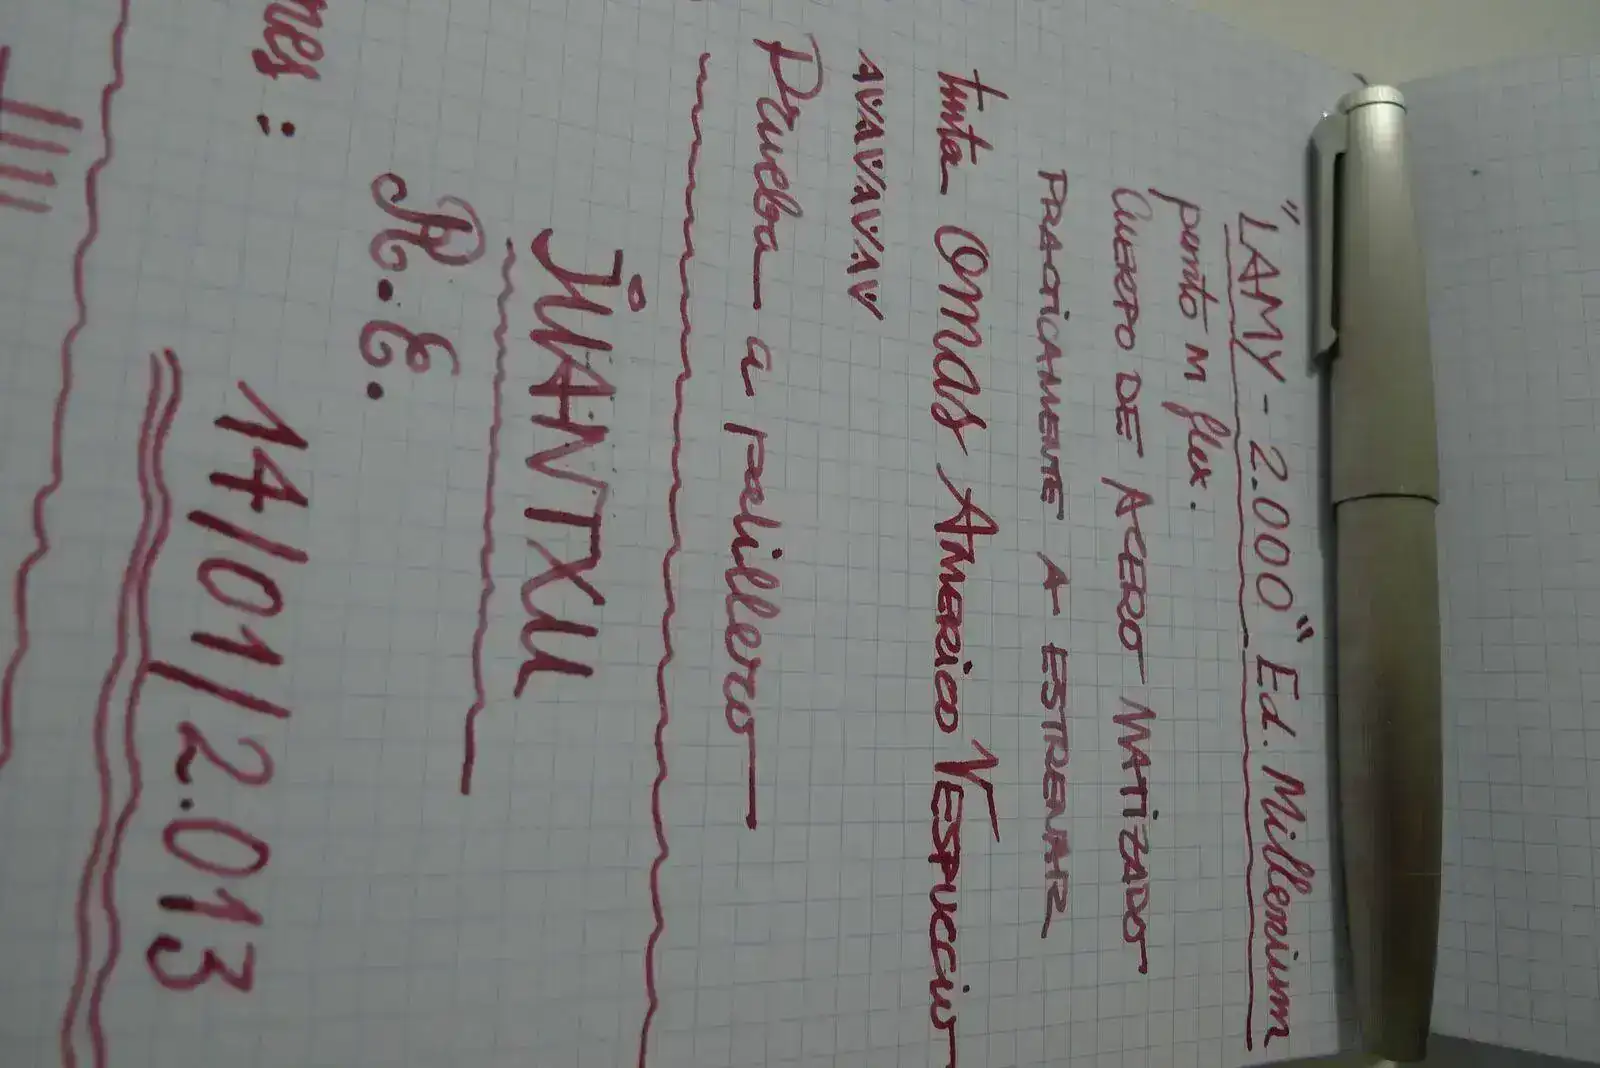 "LAMY - 2.000" Ed. Millenium
punto M flex.
CUERPO DE ACERO MATIZADO
PRACTICAMENTE A ESTRENAR
tinta OMAS AMERICO VESPUCCIO
AVAVAVAVAV
Prueba a palillero
JUANTXU
R.E.
14/01/2.013
nes: